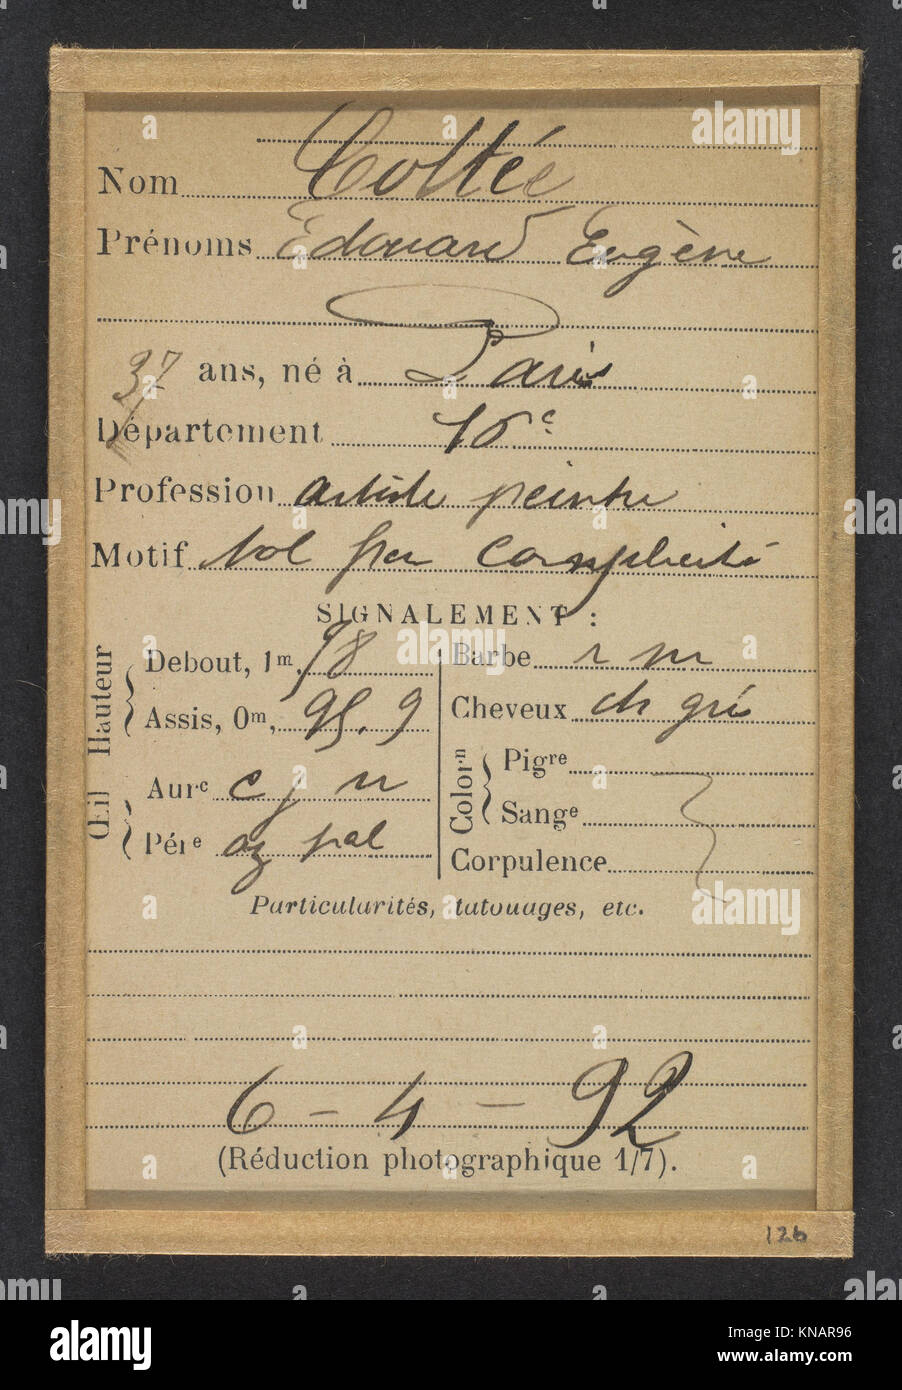 Nom Collée
Prénoms Edouard Eugène
37 ans, né à Paris
Département 16e
Profession artiste peintre
Motif Vol par complicité
SIGNALEMENT :
Hauteur
Debout, 1m. 78
Assis, 0m, 95.9
Œil
Aurc c j n
Pére az pal
Barbe r m
Cheveux ch gris
Colorn
Pigre
Sange
Corpulence
Particularités, tatouages, etc.
6 - 4 - 92
(Réduction photographique 1/7).
126
a alamy stock photo
KNAR96
www.alamy.com